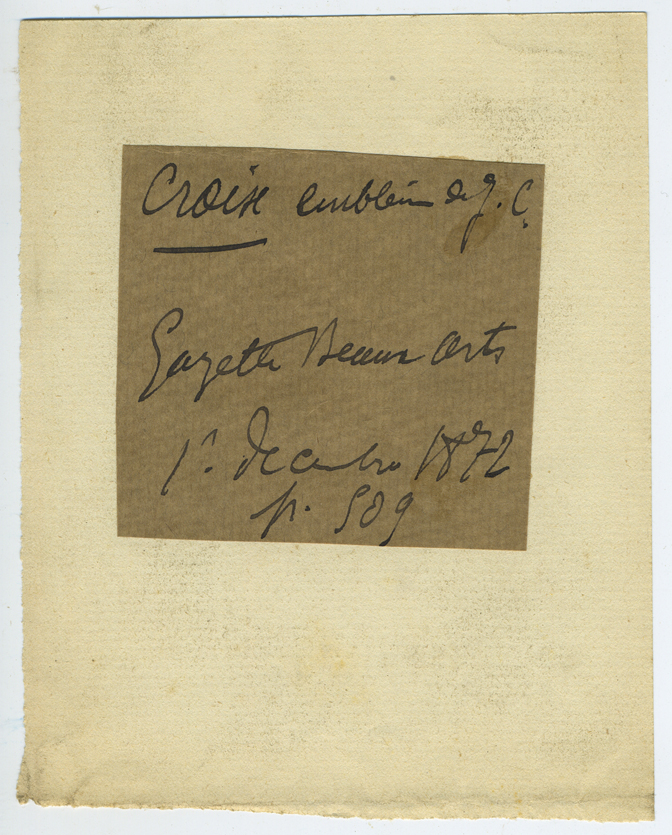 Croix emblème de J. C.
Gazette Beaux Arts
1r. décembre 1872
p. 509